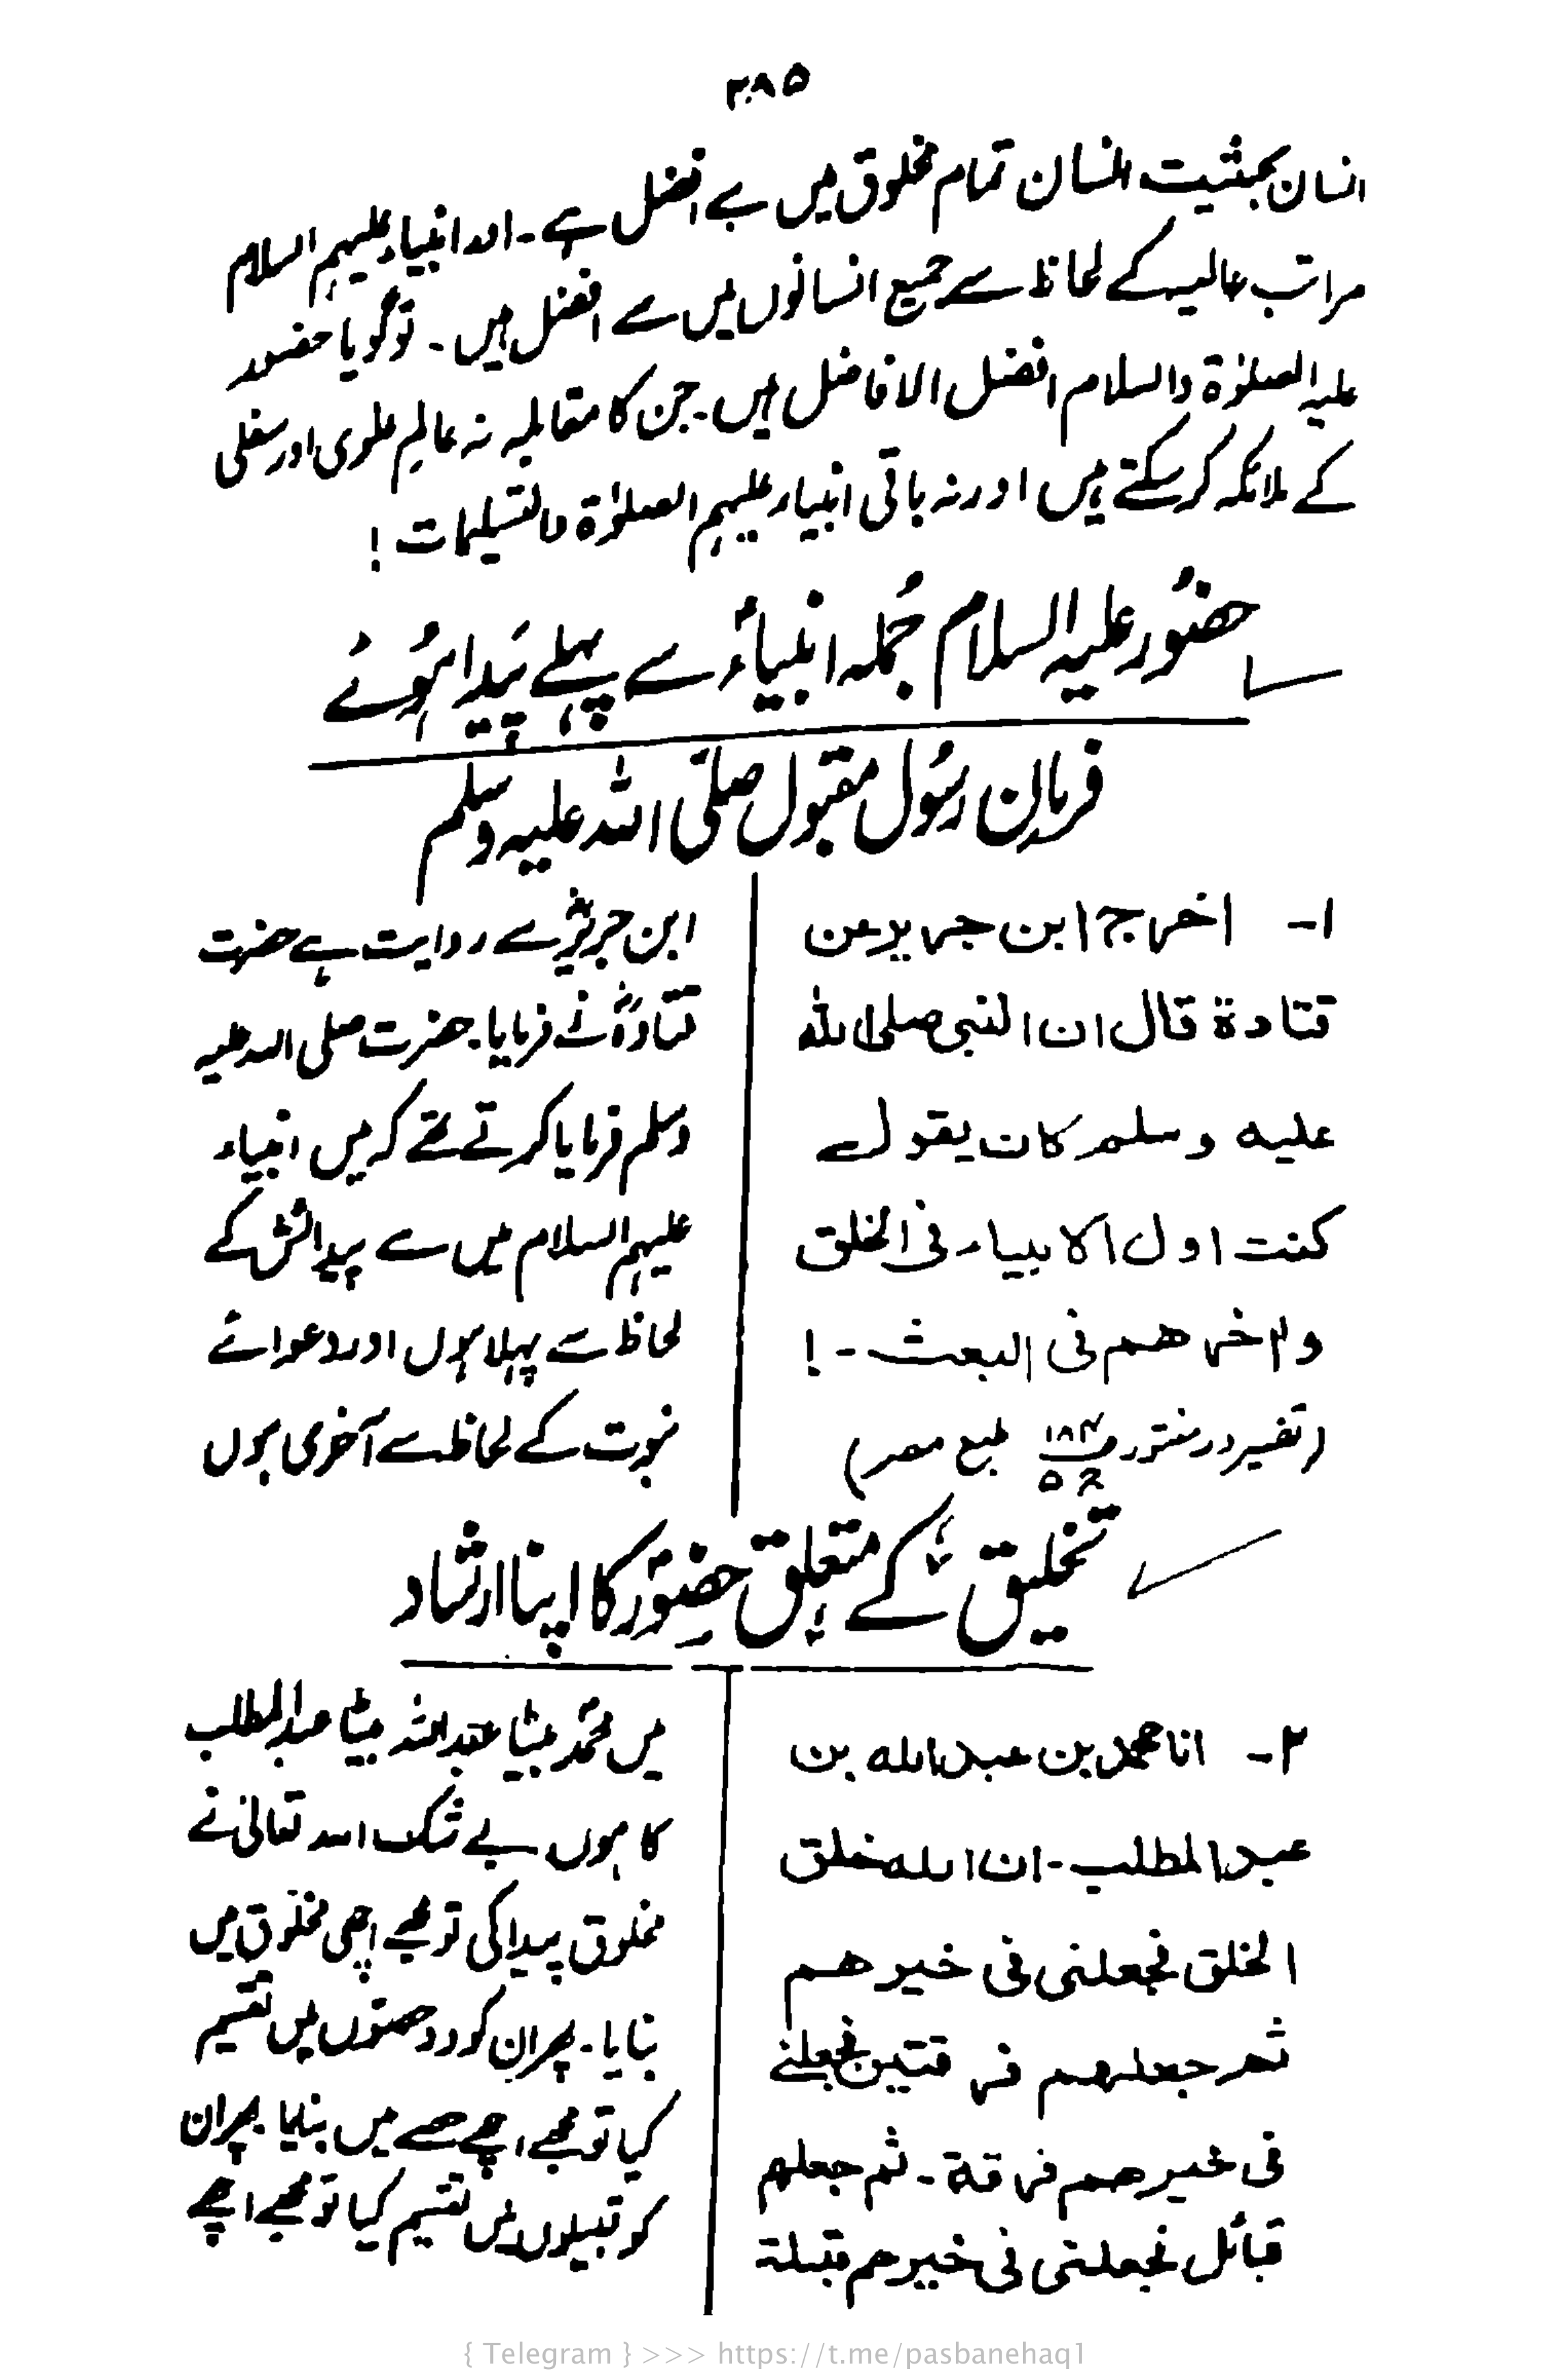 ۳۸۵
انسان بحیثیت انسان تمام مخلوق میں بے افضل ہے۔ اور انبیاء علیہم السلام
مراتب عالیہ کے لحاظ سے جمیع انسانوں میں سے افضل ہیں۔ تو گویا حضور
علیہ الصلوٰۃ والسلام افضل الافاضل ہیں۔ جن کا مقابلہ نہ عالمِ علوی اور سفلی
کے ملائکہ کر سکتے ہیں اور نہ باقی انبیاء علیہم الصلوٰۃ والتسلیمات!
حضُور علیہ السلام جُملہ انبیاءؑ سے پہلے پَیدا ہُوئے
فرمانِ رسُول مقبول صلّی اللہ علیہ وسلم
۱۔ اخرج ابن جریر عن
قتادة قال ان النبی صلی اللہ
علیہ وسلم کان یقول
کنت اول الانبیاء فی الخلق
واٰخرھم فی البعث۔!
(تفسیر در منثور ص۱۸۴ ج۵ طبع مصر)
ابن جریرؒ سے روایت ہے حضرت
قتادہؓ نے فرمایا۔ حضرت صلی اللہ علیہ
وسلم فرمایا کرتے تھے کہ میں انبیاء
علیہم السلام میں سے پیدائش کے
لحاظ سے پہلا ہوں اور دعوائے
نبوت کے لحاظ سے آخری ہوں
تخلیق کے متعلق حضورؐ کا اپنا ارشاد
۲۔ انا محمد بن عبد اللہ بن
عبد المطلب۔ ان اللہ خلق
الخلق فجعلنی فی خیرھم
ثم جعلھم فرقتین فجعلنے
فی خیرھم فرقة۔ ثم جعلھم
قبائل فجعلنی فی خیرھم قبیلة
میں محمّد بیٹا عبد اللہ بیٹا عبد المطلب
کا ہوں بے شک اللہ تعالیٰ نے
مخلوق پیدا کی تو مجھے اچھی مخلوق میں
بنایا۔ پھر ان کو دو حصوں میں تقسیم
کیا تو مجھے اچھے حصے میں بنایا۔ پھر ان
کو قبیلوں میں تقسیم کیا تو مجھے اچھے
{ Telegram } >>> https://t.me/pasbanehaq1